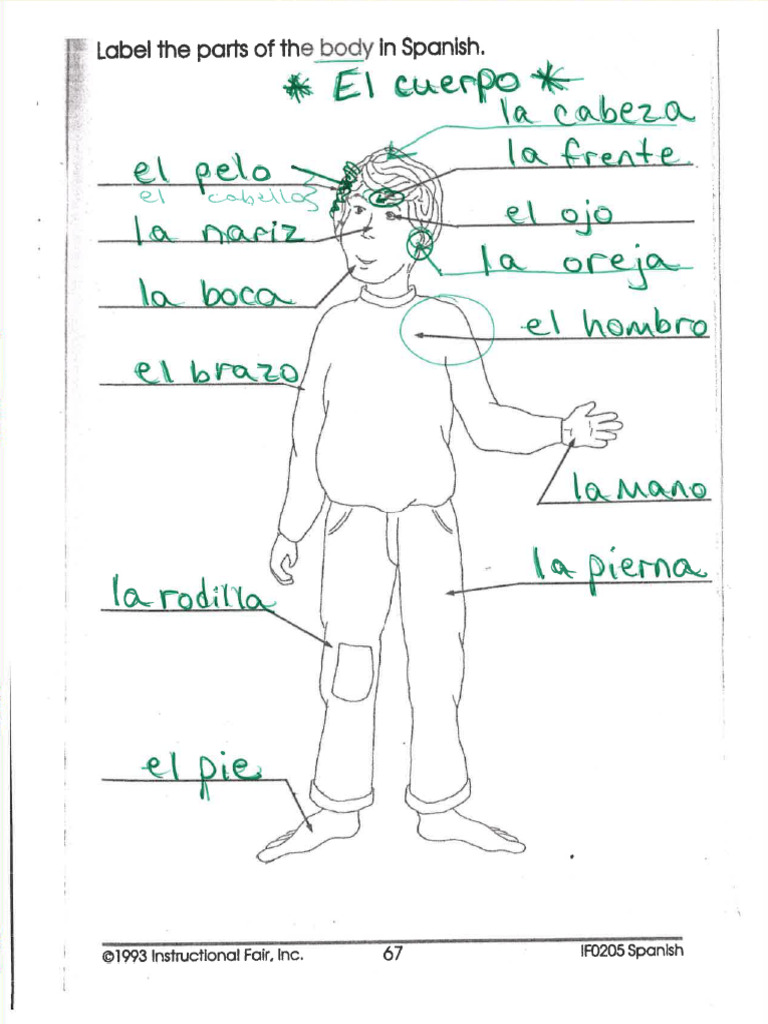 Label the parts of the body in Spanish.
* El cuerpo *
la cabeza
el pelo
la frente
el cabellos
el ojo
la nariz
la oreja
la boca
el hombro
el brazo
la mano
la pierna
la rodilla
el pie
©1993 Instructional Fair, Inc.
67
IF0205 Spanish